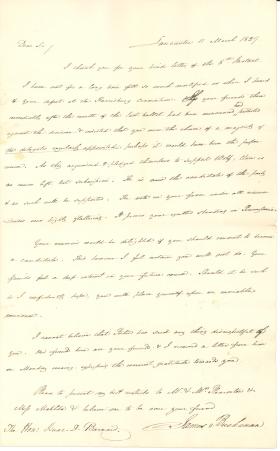 Dear Sir/ Lancaster 11 March 1829
I thank you for your kind letter of the 6th Instant.
I have not for a long time felt so much mortified as when I heard
of your defeat at the Harrisburg Convention. If your friends then
immediately after the result of the last ballot had been announced had protested
against the decision & insisted that you were the choice of a majority of
the delegates regularly appointed, perhaps it would have been the
. As they acquiesced & pledged themselves to support Wolf, there is
no move left but submission. He is now the candidate of the party
& as such will be supported. The vote in your favor under all circum-
stances was highly flattering. It proves your standing in Pennsylvania.
Your enemies would be delighted if you should consent to become
a candidate. This however I felt certain you will not do. Your
friends feel a deep interest in your future course. Should it be such
as I confidently hope, you will place yourself upon an enviable
eminence.
I cannot believe that Porter has said any thing disrespectful of
you. His friends here are your friends, & I received a letter from him
on Monday evening expressing the warmest gratitude towards you.
Please to present my best respects to Mr & Mrs &
Miss Matilda & believe me to be ever your friend
The Hon: Isaac D. Barnard. James Buchanan